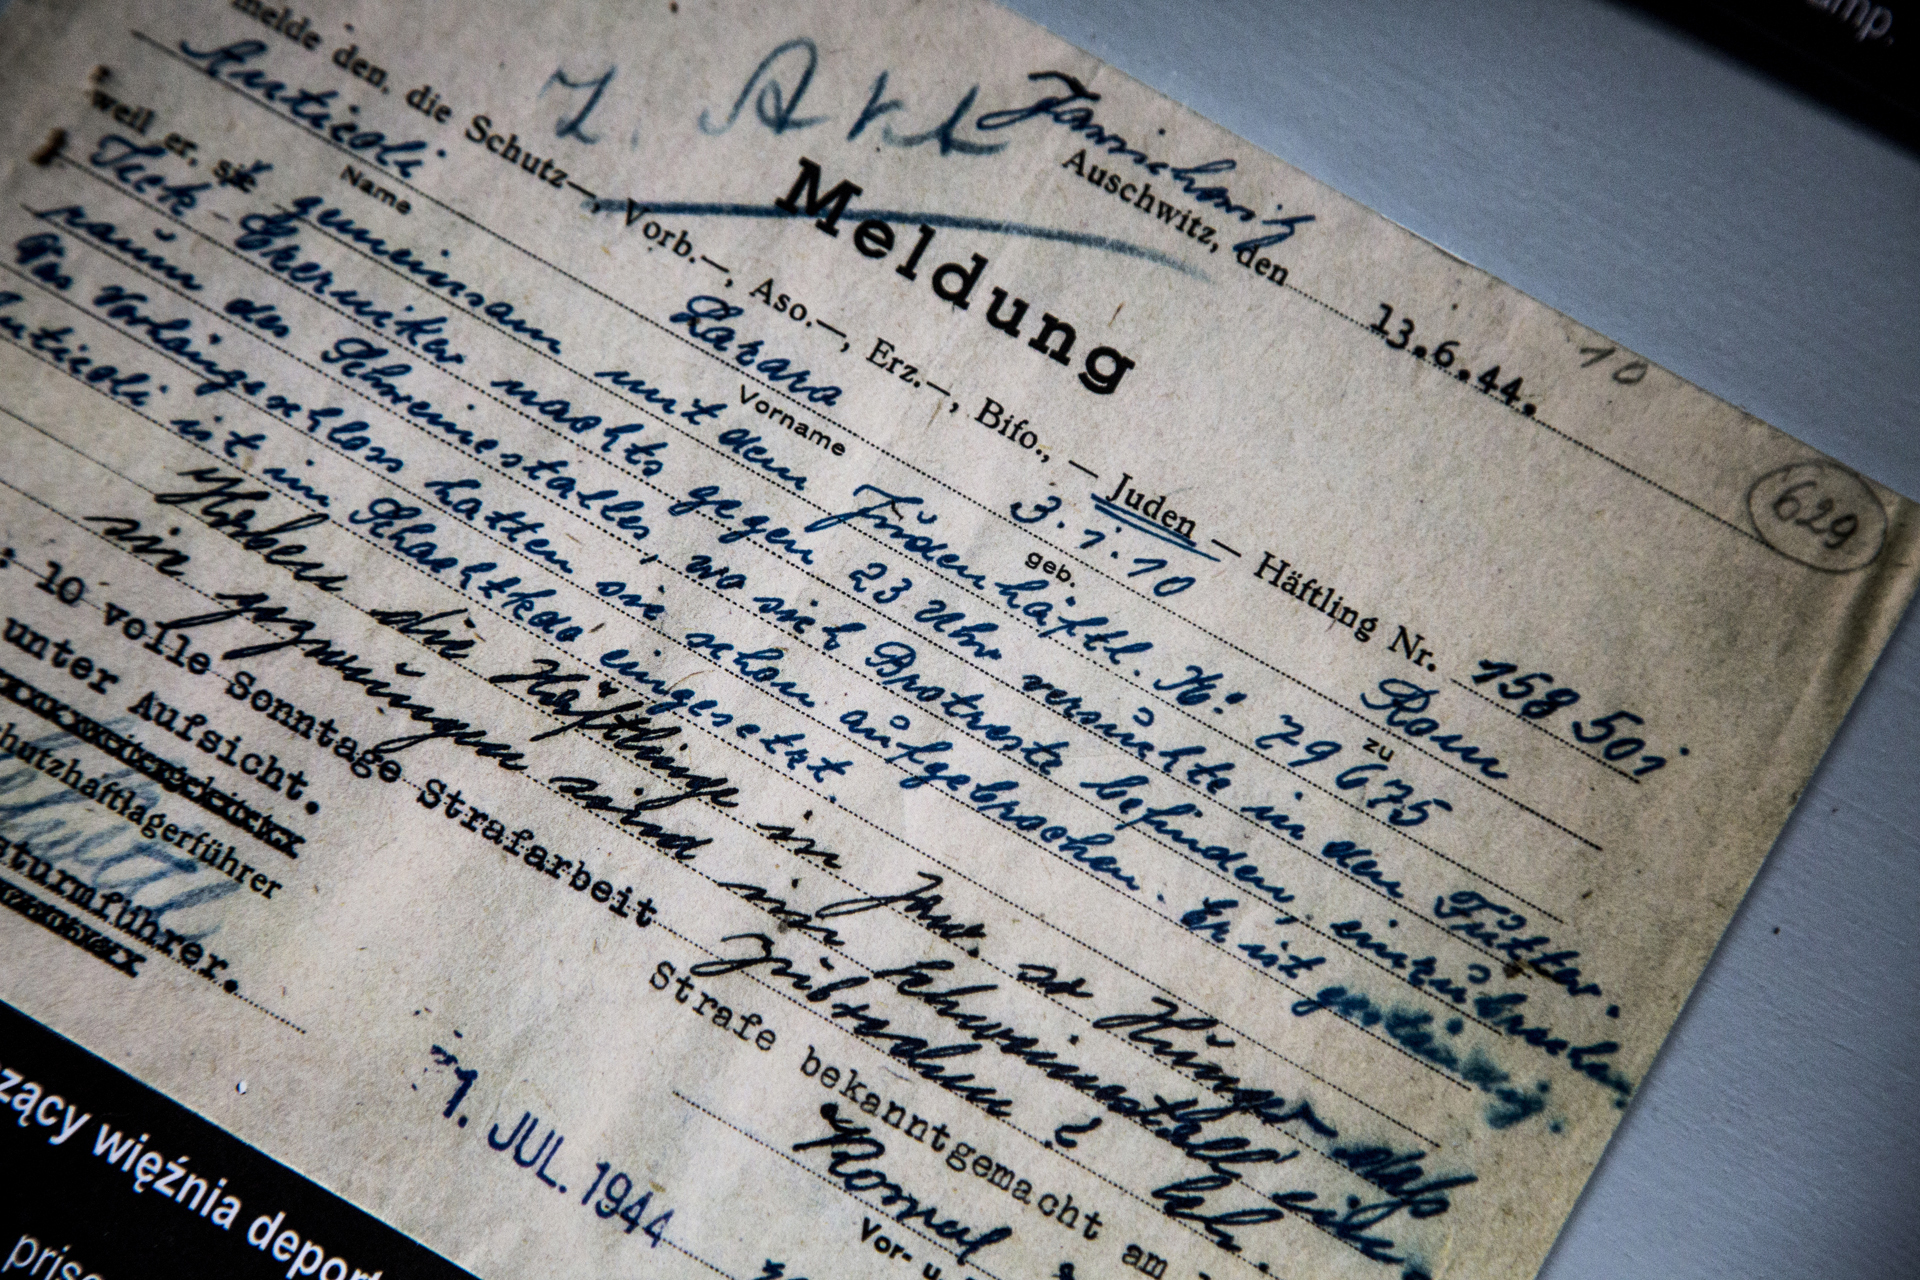 amp.
Z. Akt
Jawischowitz
Auschwitz, den 13.6.44.
10
Meldung
629
melde den, die Schutz—, Vorb.—, Aso.—, Erz.—, Bifo., — Juden — Häftling Nr. 158 501
Anticoli Lazaro 3.1.10 Rom
Name Vorname geb. zu
weil er, sie gemeinsam mit dem Judenhäftl. Nr: 79675
Izek-Chermiker nachts gegen 23 Uhr versuchte in den Futter-
raum des Schweinestalles, wo sich Brotreste befinden, einzubrechen.
Das Vorhängeschloss hatten sie schon aufgebrochen. Er ist geständig.
Anticoli ist im Schachtkdo eingesetzt.
Haben die Häftlinge in Jaw. so Hunger daß
sie gezwungen sind in Schweineställe
: 10 volle Sonntage Strafarbeit
unter Aufsicht.
chutzhaftlagerführer
sturmführer.
Strafe bekanntgemacht am
Vor- u.
1. JUL. 1944
zący więźnia deport
priso